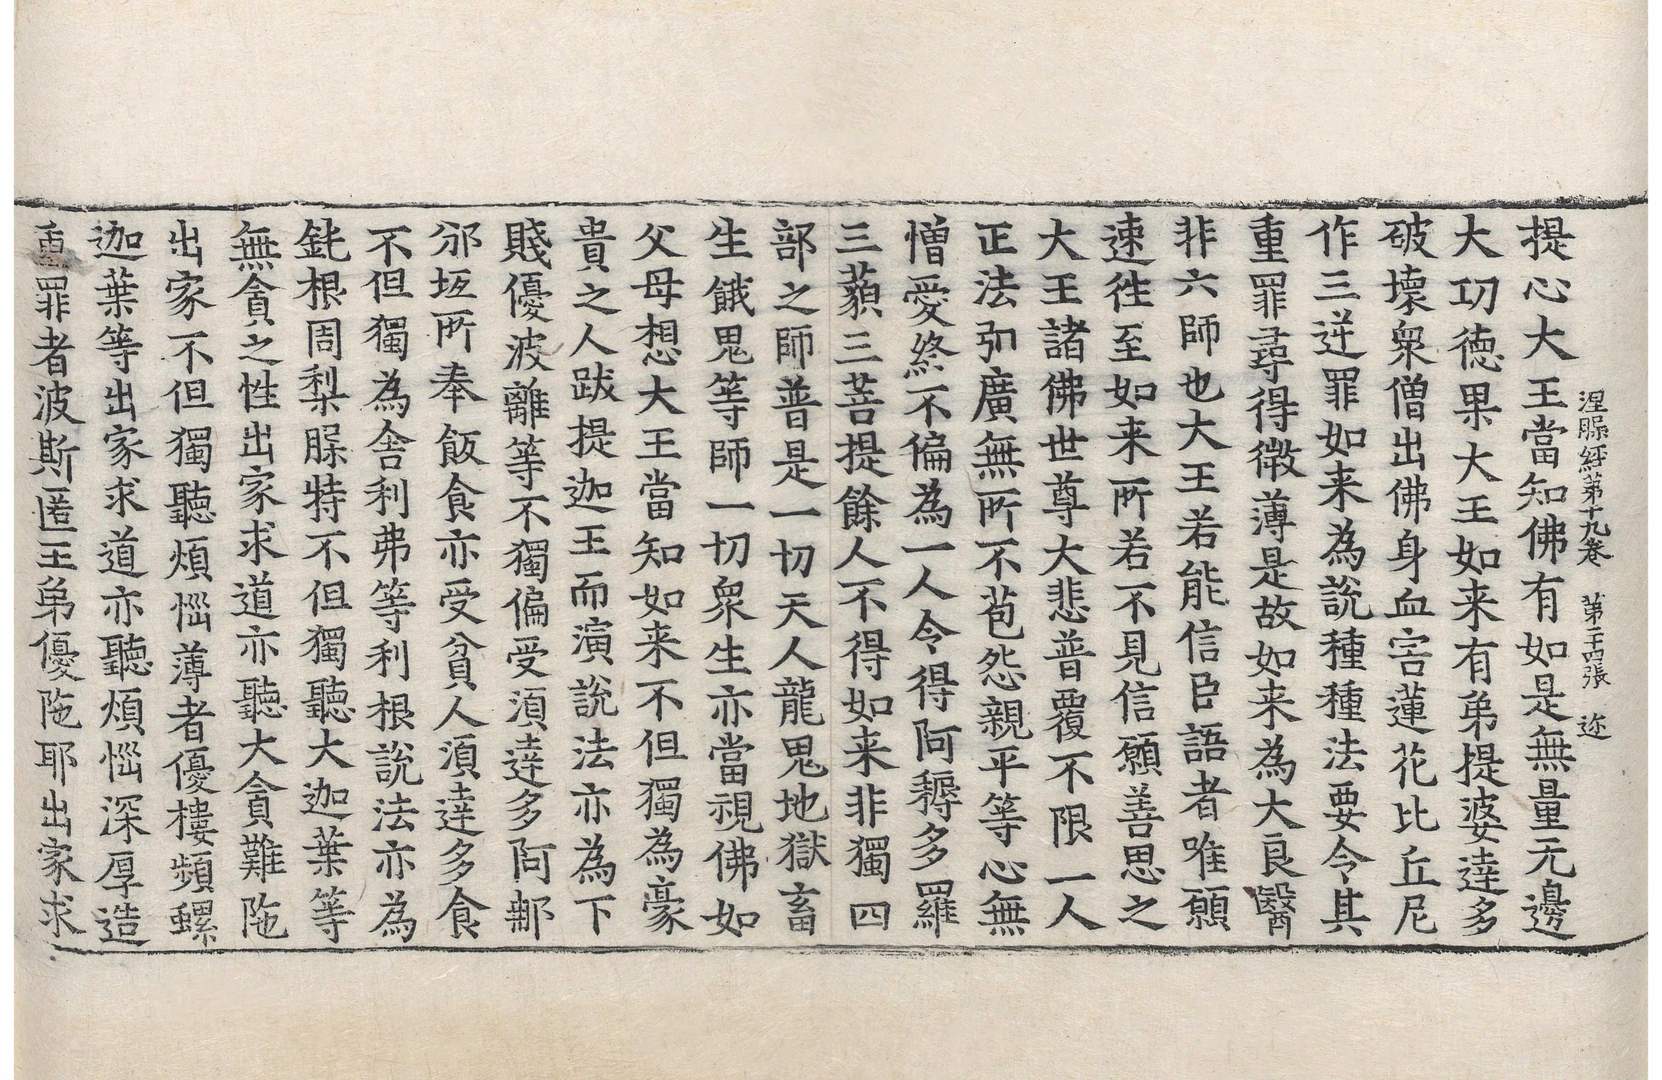 涅槃經第十九卷 第二十四張 迩
提心大王當知佛有如是無量无邊
大功德果大王如来有弟提婆達多
破壞衆僧出佛身血害蓮花比丘尼
作三逆罪如来為說種種法要令其
重罪尋得微薄是故如来為大良醫
非六師也大王若能信臣語者唯願
速往至如来所若不見信願善思之
大王諸佛世尊大悲普覆不限一人
正法弘廣無所不苞怨親平等心無
憎愛終不偏為一人令得阿耨多羅
三藐三菩提餘人不得如来非獨四
部之師普是一切天人龍鬼地獄畜
生餓鬼等師一切衆生亦當視佛如
父母想大王當知如来不但獨為豪
貴之人跋提迦王而演說法亦為下
賤優波離等不獨偏受須達多阿那
邠坻所奉飯食亦受貧人須達多食
不但獨為舍利弗等利根說法亦為
鈍根周梨槃特不但獨聽大迦葉等
無貪之性出家求道亦聽大貪難陁
出家不但獨聽煩惱薄者優樓頻螺
迦葉等出家求道亦聽煩惱深厚造
重罪者波斯匿王弟優陁耶出家求